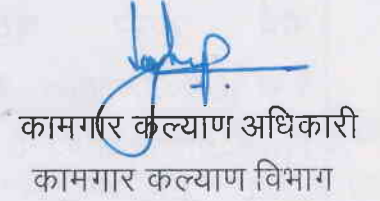 कामगार कल्याण अधिकारी
कामगार कल्याण विभाग